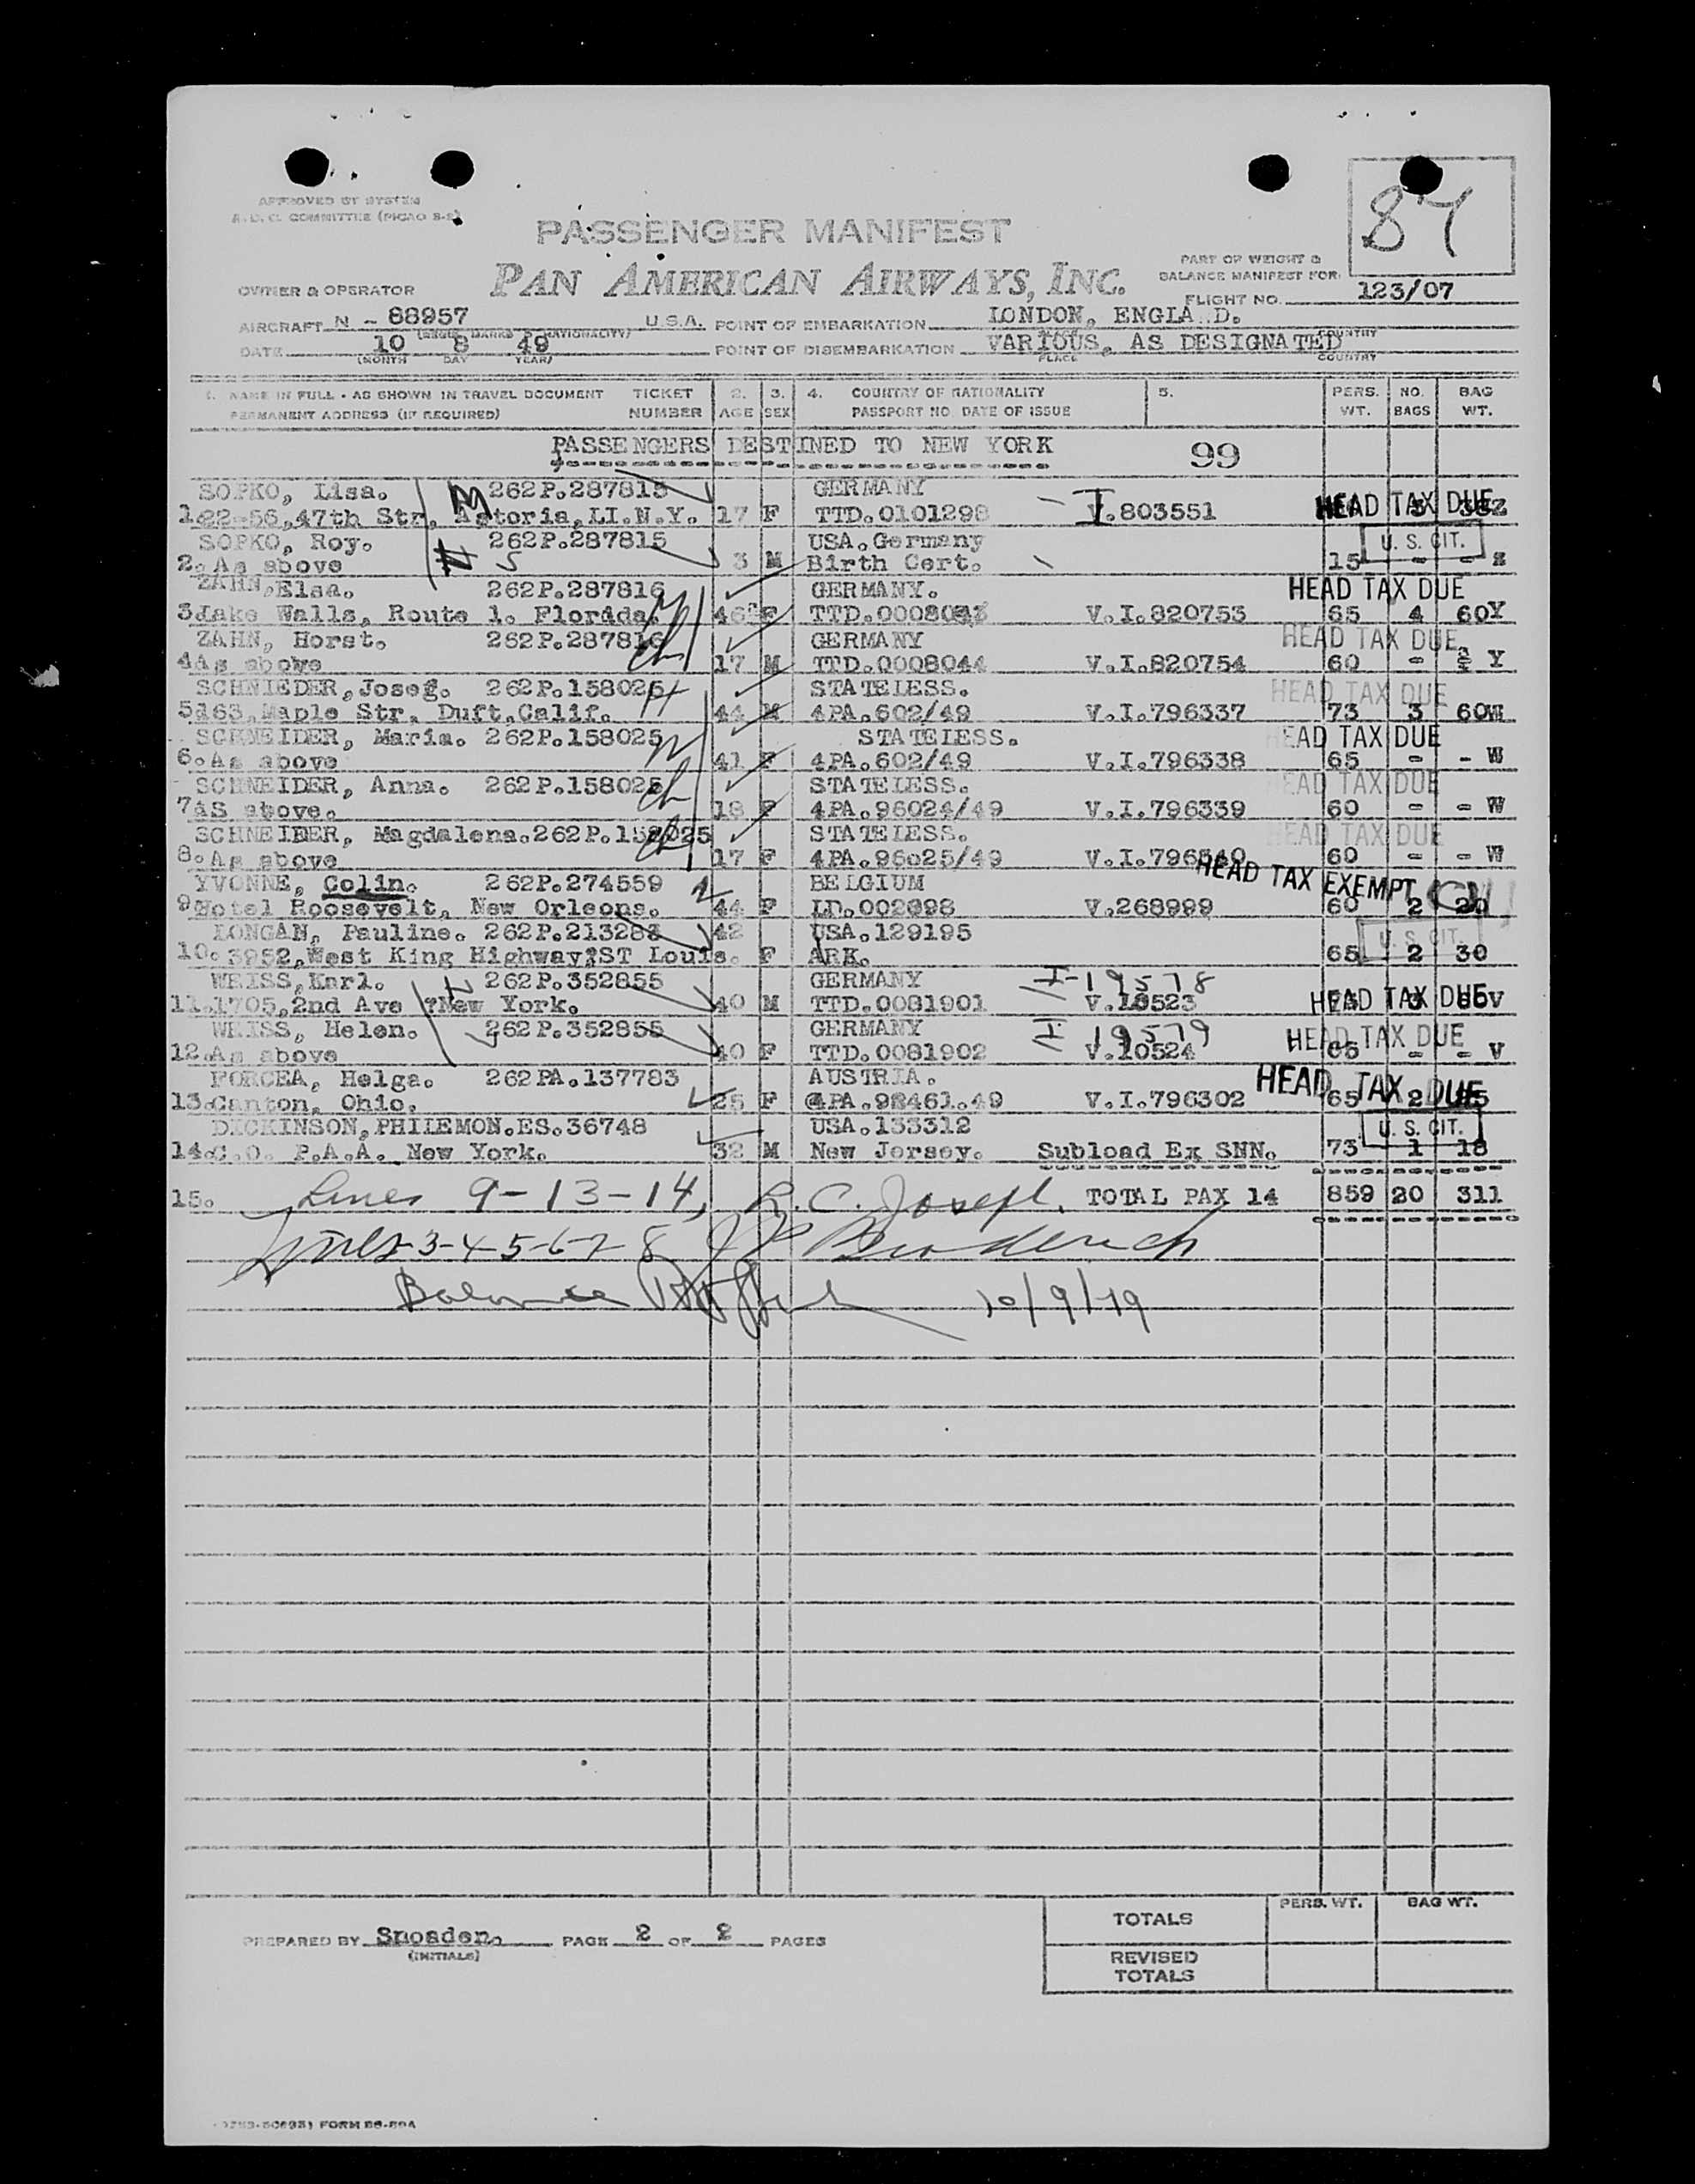 APPROVED BY SYSTEM
A.D.C. COMMITTEE (PICAO S-2)
87
PASSENGER MANIFEST
PAN AMERICAN AIRWAYS, INC.
PART OF WEIGHT &
BALANCE MANIFEST FOR
OWNER & OPERATOR
FLIGHT NO. 123/07
AIRCRAFT N - 88957 U.S.A. POINT OF EMBARKATION LONDON, ENGLA D.
DATE 10 8 49 POINT OF DISEMBARKATION VARIOUS, AS DESIGNATED
(MONTH DAY YEAR) PLACE COUNTRY
1. NAME IN FULL - AS SHOWN IN TRAVEL DOCUMENT TICKET 2. 3. 4. COUNTRY OF NATIONALITY 5. PERS. NO. BAG
PERMANENT ADDRESS (IF REQUIRED) NUMBER AGE SEX PASSPORT NO. DATE OF ISSUE WT. BAGS WT.
PASSENGERS DESTINED TO NEW YORK 99
SOPKO, Lisa. 262P.287815 GERMANY
1.22-56,47th Str, Astoria,LI.N.Y. 17 F TTD.0101298 - I V.803551 HEAD TAX DUE
SOPKO, Roy. 262P.287815 USA.Germany U. S. CIT.
2. As above 3 M Birth Cert. 15 - - Z
ZAHN,Elsa. 262P.287816 GERMANY. HEAD TAX DUE
3.Lake Walls, Route 1. Florida. 46 F V.I.820753 65 4 60Y
ZAHN, Horst. 262P.287816 GERMANY HEAD TAX DUE
4As above 17 M TTD.0008044 V.I.820754 60 - - Y
SCHNIEDER,Josef. 262P.158025 STATELESS. HEAD TAX DUE
5163,Maple Str, Duft,Calif. 44 M 4PA.602/49 V.I.796337 73 3 60W
SCHNEIDER, Maria. 262P.158025 STATELESS. HEAD TAX DUE
6.As above 41 F 4PA.602/49 V.I.796338 65 - - W
SCHNEIDER, Anna. 262P.158025 STATELESS. HEAD TAX DUE
7AS above. 18 F 4PA.96024/49 V.I.796339 60 - - W
SCHNEIDER, Magdalena.262P.158025 STATELESS. HEAD TAX DUE
8.As above 17 F 4PA.96025/49 60 - - W
YVONNE, Colin. 262P.274559 BELGIUM HEAD TAX EXEMPT
9Hotel Roosevelt, New Orleans. 44 F V.268999 60 2 20
LONGAN, Pauline. 262P.213283 42 USA.129195 U. S. CIT.
10. 3952,West King Highway,ST Louis. F ARK. 65 2 30
WEISS,Karl. 262P.352855 GERMANY I-19578
11.1705,2nd Ave New York. 40 M TTD.0081901 V.10523 HEAD TAX DUE
WEISS, Helen. 262P.352855 GERMANY I 19579
12.As above 40 F TTD.0081902 V.10524 HEAD TAX DUE 65 - - V
PORCEA, Helga. 262PA.137783 AUSTRIA.
13.Canton, Ohio. 25 F 4PA.98461.49 V.I.796302 HEAD TAX DUE 65 2
DICKINSON,PHILEMON.ES.36748 USA.133312 U. S. CIT.
14.C.O. P.A.A. New York. 32 M New Jersey. Subload Ex SNN. 73 1 18
15. Lines 9-13-14, R. C. Joseph. TOTAL PAX 14 859 20 311
Lines-3-4-5-6-7-8 Broderick
Balance 10/9/49
TOTALS PERS. WT. BAG WT.
PREPARED BY Snoaden. PAGE 2 OF 2 PAGES
(INITIALS)
REVISED
TOTALS